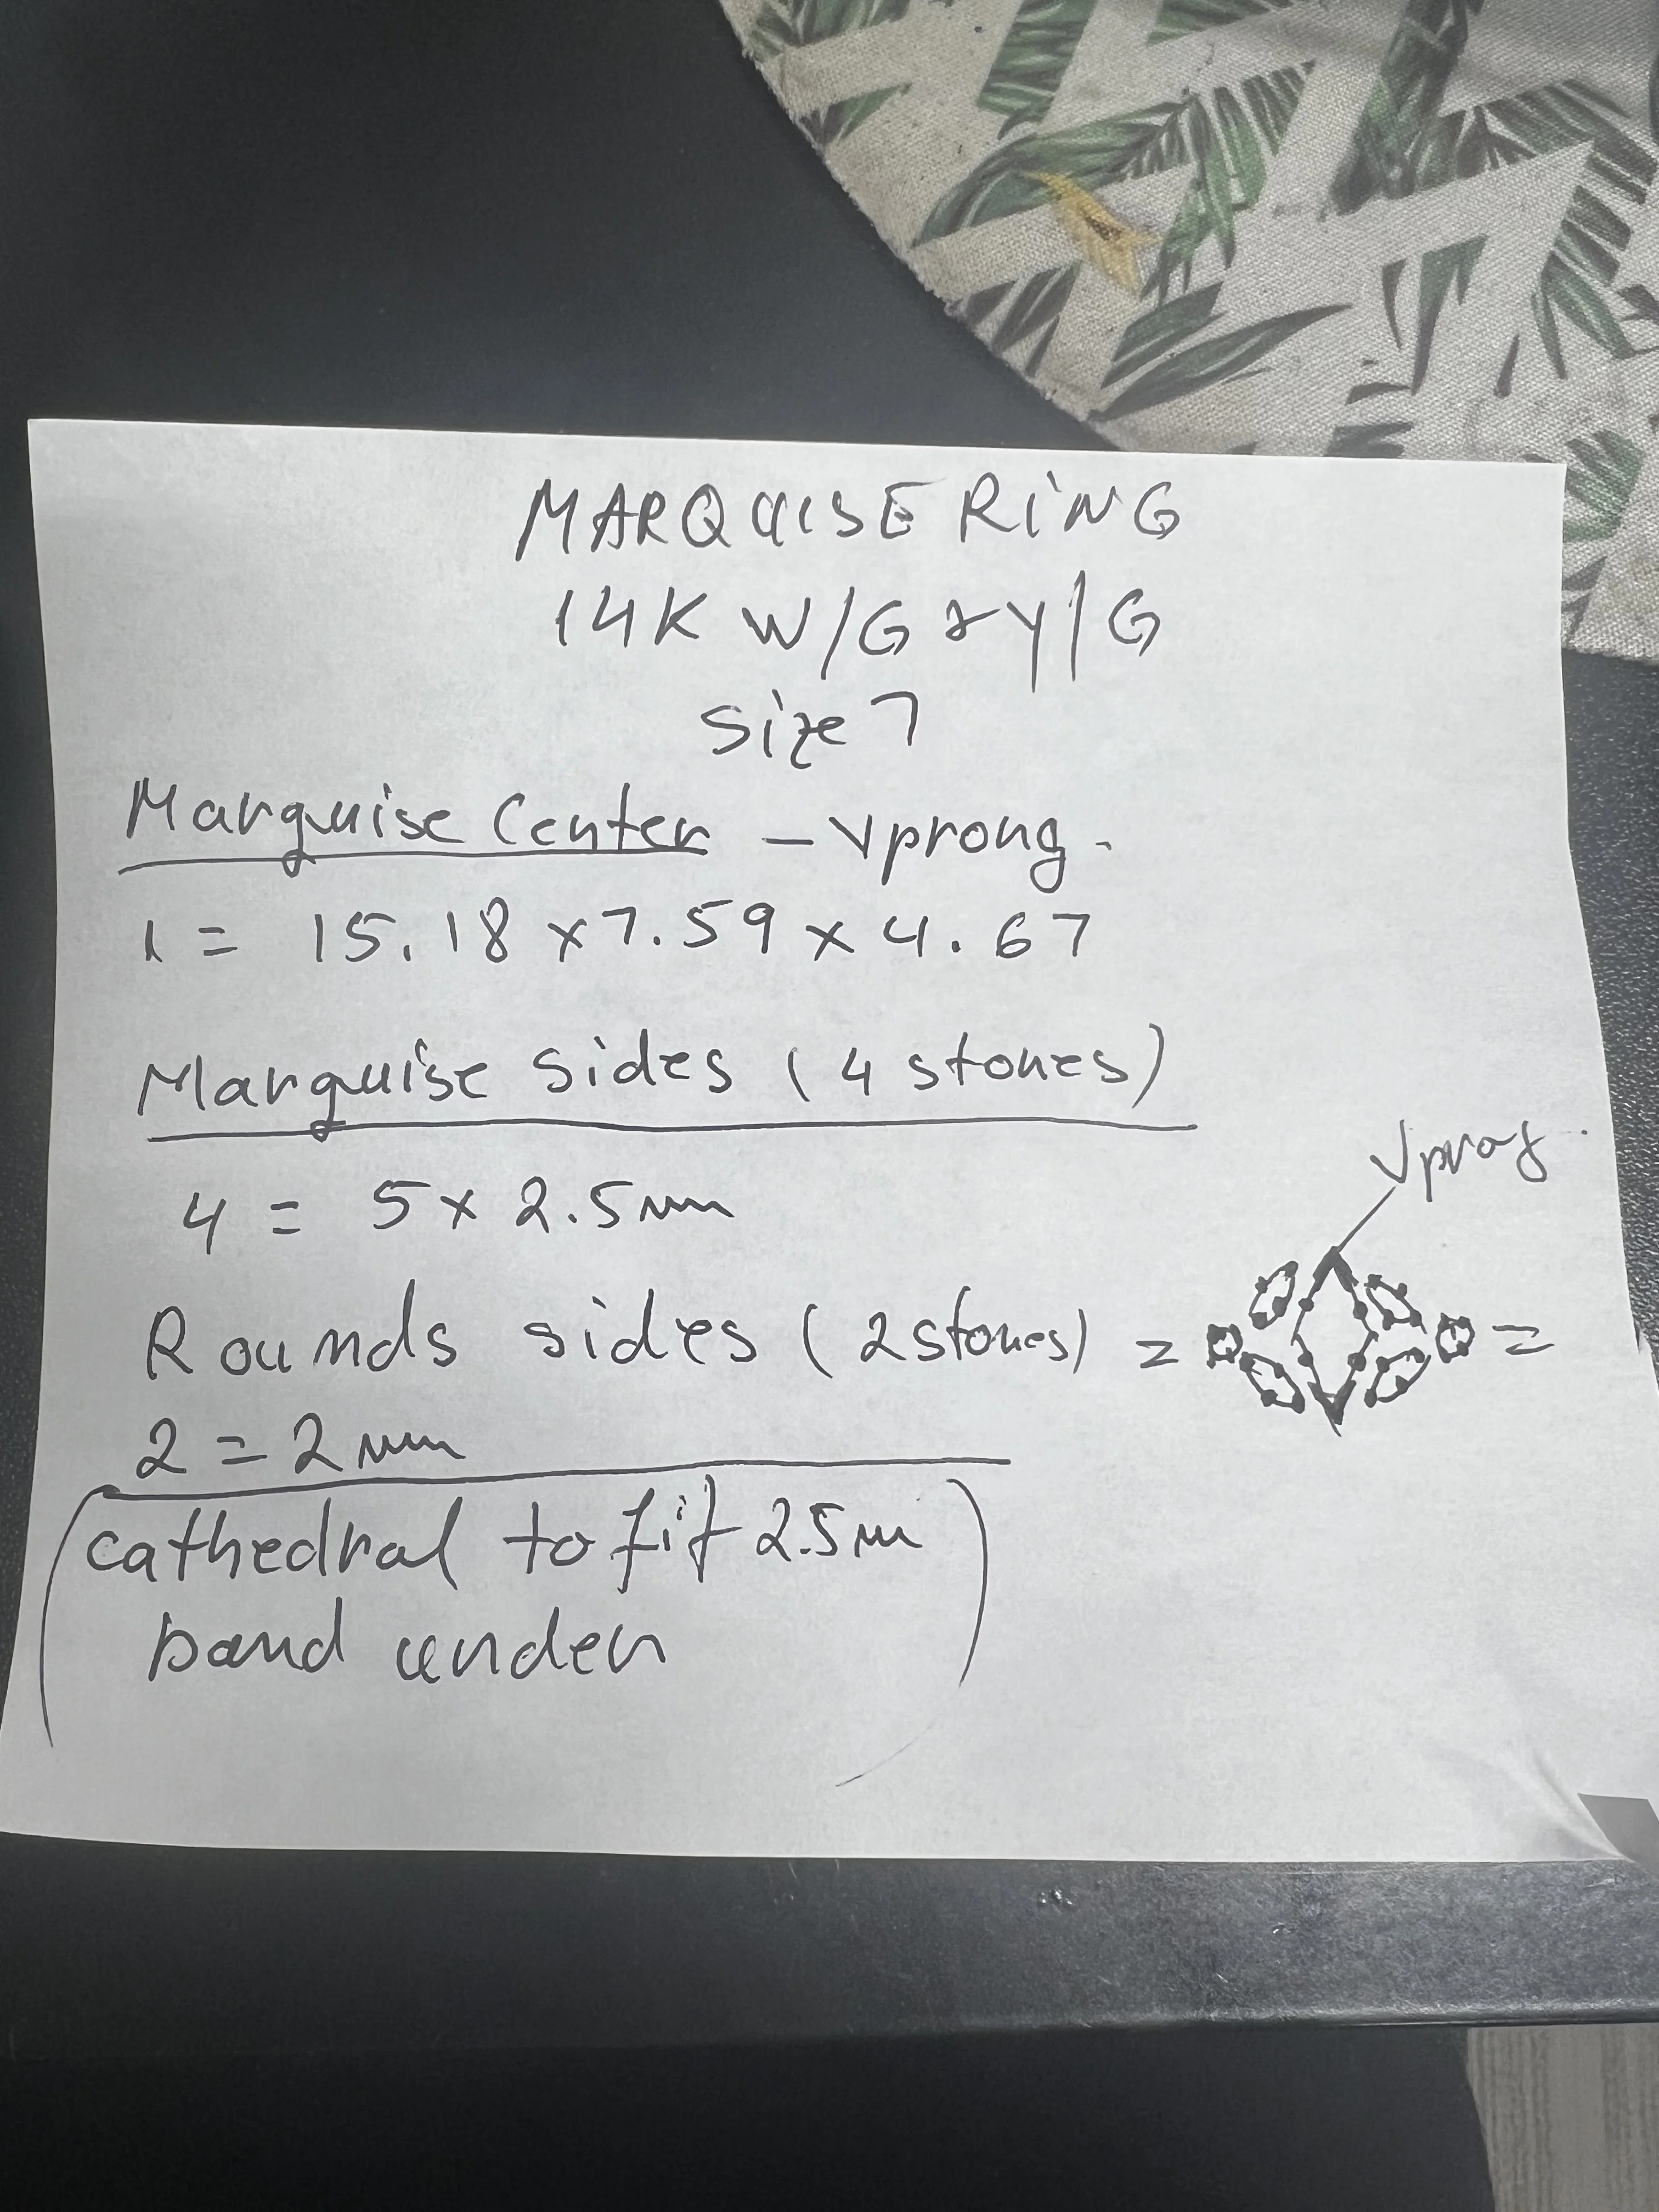 MARQUISE RING
14K W/G & Y/G
Size 7
Marquise Center - Vprong.
1 = 15.18 x 7.59 x 4.67
Marquise sides (4 stones)
4 = 5 x 2.5mm
Vprong.
Rounds sides (2 stones) = =
2 = 2mm
(cathedral to fit 2.5m
band under)